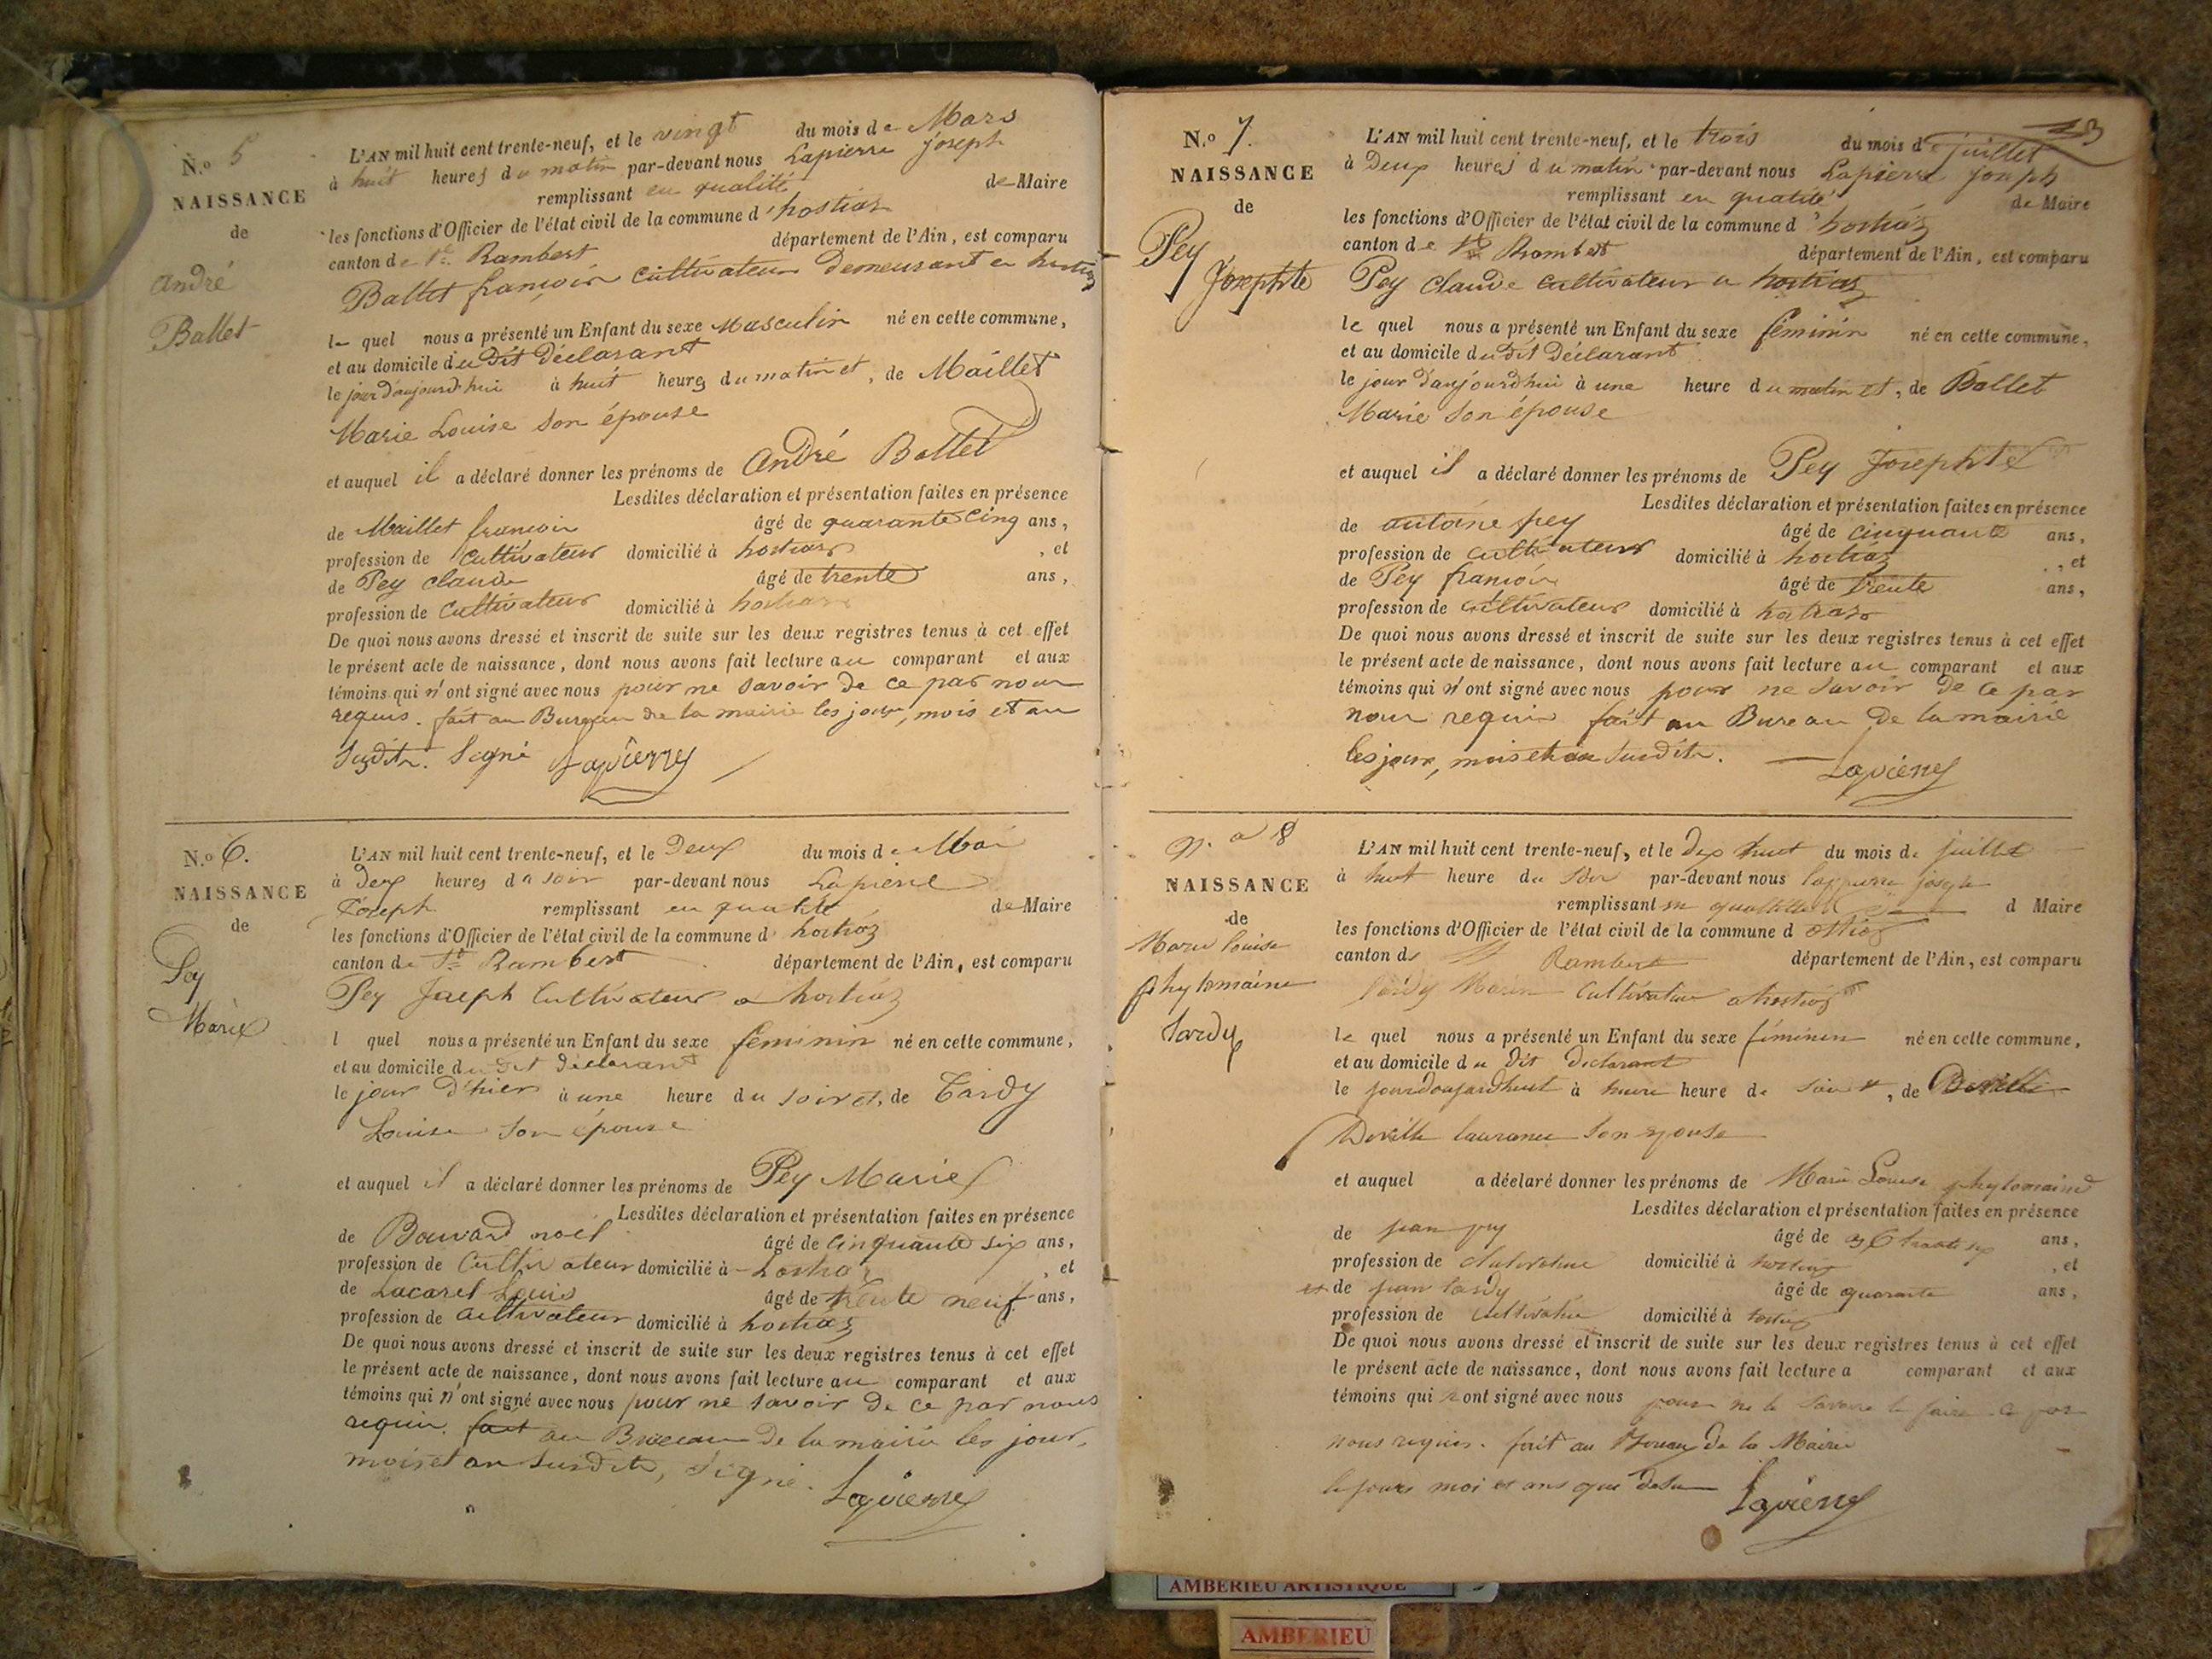 N.º 5
NAISSANCE
de
André
Ballet
L'AN mil huit cent trente-neuf, et le vingt du mois de Mars
à huit heures du matin par-devant nous Lapierre Joseph
remplissant en qualité de Maire
les fonctions d'Officier de l'état civil de la commune d'hostiaz
canton de St Rambert département de l'Ain, est comparu
Ballet françois cultivateur demeurant a hostiaz
le quel nous a présenté un Enfant du sexe Masculin né en cette commune,
et au domicile du dit déclarant
le jour d'aujourd'hui à huit heures du matin et, de Maillet
Marie Louise son épouse
et auquel il a déclaré donner les prénoms de André Ballet
Lesdites déclaration et présentation faites en présence
de Maillet françois âgé de quarante cinq ans,
profession de cultivateur domicilié à hostiaz, et
de Pey claude âgé de trente ans,
profession de cultivateur domicilié à hostiaz
De quoi nous avons dressé et inscrit de suite sur les deux registres tenus à cet effet
le présent acte de naissance, dont nous avons fait lecture au comparant et aux
témoins qui n'ont signé avec nous pour ne savoir de ce par nous
requis. fait au Bureau de la mairie les jour, mois et an
susdits. Signé Lapierre
N.º 6.
NAISSANCE
de
Pey
Marie
L'AN mil huit cent trente-neuf, et le deux du mois de Mai
à deux heures du soir par-devant nous Lapierre
Joseph remplissant en qualité de Maire
les fonctions d'Officier de l'état civil de la commune d'hostiaz
canton de St Rambert département de l'Ain, est comparu
Pey Joseph cultivateur a hostiaz
l quel nous a présenté un Enfant du sexe féminin né en cette commune,
et au domicile du dit déclarant
le jour d'hier à une heure du soir et, de Tardy
Louise son épouse
et auquel il a déclaré donner les prénoms de Pey Marie
Lesdites déclaration et présentation faites en présence
de Bouvard noël âgé de cinquante six ans,
profession de cultivateur domicilié à hostiaz, et
de Lacarel Louis âgé de trente neuf ans,
profession de cultivateur domicilié à hostiaz
De quoi nous avons dressé et inscrit de suite sur les deux registres tenus à cet effet
le présent acte de naissance, dont nous avons fait lecture au comparant et aux
témoins qui n'ont signé avec nous pour ne savoir de ce par nous
requis. fait au Bureau de la mairie les jour,
mois et an susdits, signé. Lapierre
N.º 7.
NAISSANCE
de
Pey
Josephte
L'AN mil huit cent trente-neuf, et le trois du mois de juillet
à Deux heures du matin par-devant nous Lapierre Joseph
remplissant en qualité de Maire
les fonctions d'Officier de l'état civil de la commune d'hostiaz
canton de St Rambert département de l'Ain, est comparu
Pey claude cultivateur a hostiaz
le quel nous a présenté un Enfant du sexe féminin né en cette commune,
et au domicile du dit Déclarant
le jour d'aujourd'hui à une heure du matin et, de Ballet
Marie son épouse
et auquel il a déclaré donner les prénoms de Pey Josephte
Lesdites déclaration et présentation faites en présence
de antoine pey âgé de cinquante ans,
profession de cultivateur domicilié à hostiaz, et
de Pey françois âgé de trente ans,
profession de cultivateur domicilié à hostiaz
De quoi nous avons dressé et inscrit de suite sur les deux registres tenus à cet effet
le présent acte de naissance, dont nous avons fait lecture au comparant et aux
témoins qui n'ont signé avec nous pour ne savoir de ce par
nous requis fait au Bureau de la mairie
les jour, mois et an susdits. Lapierre
N.º 8
NAISSANCE
de
Marie louise
phylomaine
tardy
L'AN mil huit cent trente-neuf, et le dix huit du mois de juillet
à huit heure du soir par-devant nous lapierre joseph
remplissant en d Maire
les fonctions d'Officier de l'état civil de la commune d ostiaz
canton de St Rambert département de l'Ain, est comparu
tardy cultivateur a hostiaz
le quel nous a présenté un Enfant du sexe féminin né en cette commune,
et au domicile du dit Declarant
le à heure de soir et, de Deville
Deville laurance son epouse
et auquel a déclaré donner les prénoms de Marie Louise phylomaine
Lesdites déclaration et présentation faites en présence
de jean pey âgé de ans,
profession de domicilié à hostiaz, et
et de jean tardy âgé de quarante ans,
profession de cultivateur domicilié à hostiaz
De quoi nous avons dressé et inscrit de suite sur les deux registres tenus à cet effet
le présent acte de naissance, dont nous avons fait lecture a comparant et aux
témoins qui n ont signé avec nous pour ne le savoir le faire ce par
nous requis. fait au Bureau de la Mairie
le jours moi et ans que desu Lapierre
AMBERIEU ARTISTIQUE
AMBERIEU